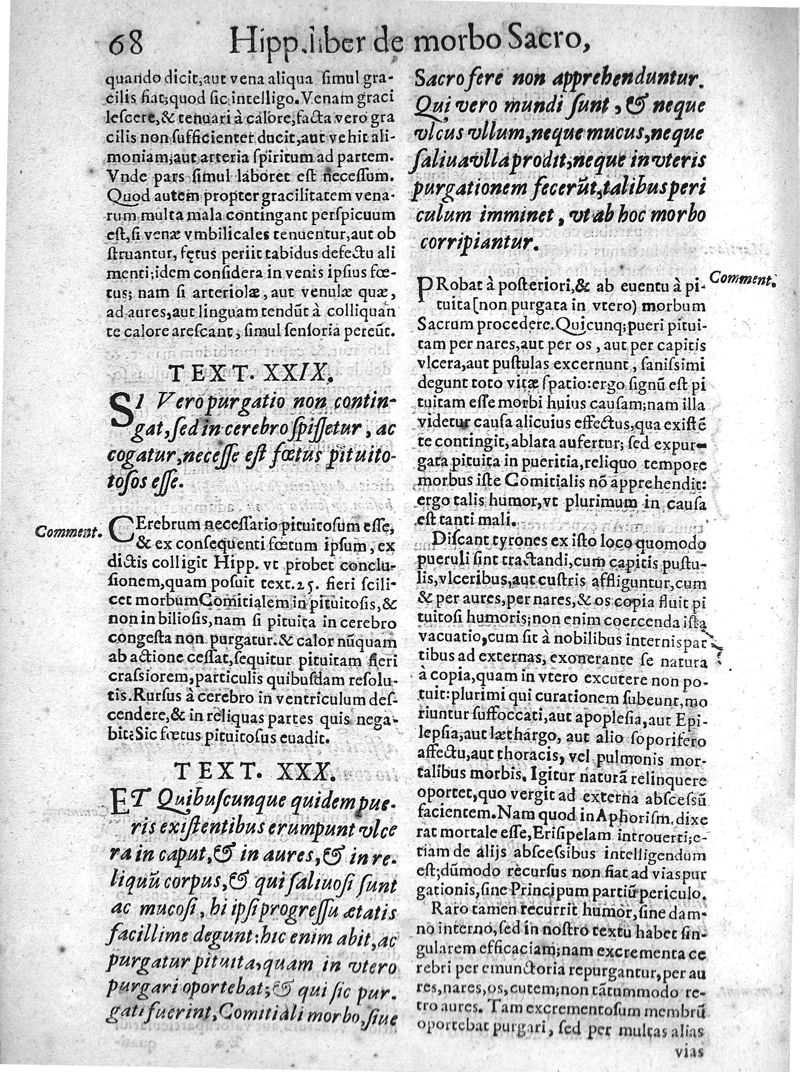 68 Hipp. liber de morbo Sacro,
quando dicit, aut vena aliqua simul gra-
cilis fiat; quod sic intelligo. Venam graci
lescere, & tenuari à calore, facta vero gra
cilis non sufficienter ducit, aut vehit ali-
moniam; aut arteria spiritum ad partem.
Vnde pars simul laboret est necessum.
Quod autem propter gracilitatem vena-
rum multa mala contingant perspicuum
est, si venæ vmbilicales tenuentur, aut ob
struantur, fętus periit tabidus defectu ali
menti; idem considera in venis ipsius fœ-
tus; nam si arteriolæ, aut venulæ quæ,
ad aures, aut linguam tendũt à colliquan
te calore arescant, simul sensoria pereũt.
TEXT. XXIX.
SI Vero purgatio non contin-
gat, sed in cerebro spissetur, ac
cogatur, necesse est fœtus pituito-
tosos esse.
Comment.
CErebrum necessario pituitosum esse,
& ex consequenti fœtum ipsum, ex
dictis colligit Hipp. vt probet conclu-
sionem, quam posuit text. 25. fieri scili-
cet morbum Comitialem in pituitosis, &
non in biliosis, nam si pituita in cerebro
congesta non purgatur. & calor nũquam
ab actione cessat, sequitur pituitam fieri
crassiorem, particulis quibusdam resolu-
tis. Rursus à cerebro in ventriculum des-
cendere, & in reliquas partes quis nega-
bit: Sic fœtus pituitosus euadit.
TEXT. XXX.
ET Quibuscunque quidem pue-
ris existentibus erumpunt vlce
ra in caput, & in aures, & in re-
liquũ corpus, & qui saliuosi sunt
ac mucosi, hi ipsi progressu ætatis
facillime degunt: hic enim abit, ac
purgatur pituita, quam in vtero
purgari oportebat; & qui sic pur.
gati fuerint, Comitiali morbo, siue
Sacro fere non apprehenduntur.
Qui vero mundi sunt, & neque
vlcus vllum, neque mucus, neque
saliua vlla prodit, neque in vteris
purgationem fecerũt, talibus peri
culum imminet, vt ab hoc morbo
corripiantur.
Comment.
PRobat à posteriori, & ab euentu à pi-
tuita [non purgata in vtero) morbum
Sacrum procedere. Quicunq; pueri pitui-
tam per nares, aut per os, aut per capitis
vlcera, aut pustulas excernunt, sanissimi
degunt toto vitæ spatio: ergo signũ est pi
tuitam esse morbi huius causam; nam illa
videtur causa alicuius effectus, qua existẽ
te contingit, ablata aufertur; sed expur-
gata pituita in pueritia, reliquo tempore
morbus iste Comitialis nõ apprehendit:
ergo talis humor, vt plurimum in causa
est tanti mali.
Discant tyrones ex isto loco quomodo
pueruli sint tractandi, cum capitis pustu-
lis, vlceribus, aut custris affliguntur, cum
& per aures, per nares, & os copia fluit pi
tuitosi humoris; non enim coercenda ista
vacuatio, cum sit à nobilibus internis par
tibus ad externas, exonerante se natura
à copia, quam in vtero excutere non po-
tuit: plurimi qui curationem subeunt, mo
riuntur suffoccati, aut apoplesia, aut Epi-
lepsia; aut læthargo, aut alio soporifero
affectu, aut thoracis, vel pulmonis mor-
talibus morbis. Igitur naturã relinquere
oportet, quo vergit ad externa abscessũ
facientem. Nam quod in Aphorism, dixe
rat mortale esse, Erisipelam introuerti; e-
tiam de alijs abscessibus intelligendum
est; dũmodo recursus non fiat ad vias pur
gationis, sine Principum partiũ periculo.
Raro tamen recurrit humor, sine dam-
no interno, sed in nostro textu habet sin-
gularem efficaciam; nam excrementa ce
rebri per emunctoria repurgantur, per au
res, nares, os, cutem; non tãtummodo re-
tro aures. Tam excrementosum membrũ
oportebat purgari, sed per multas alias
vias